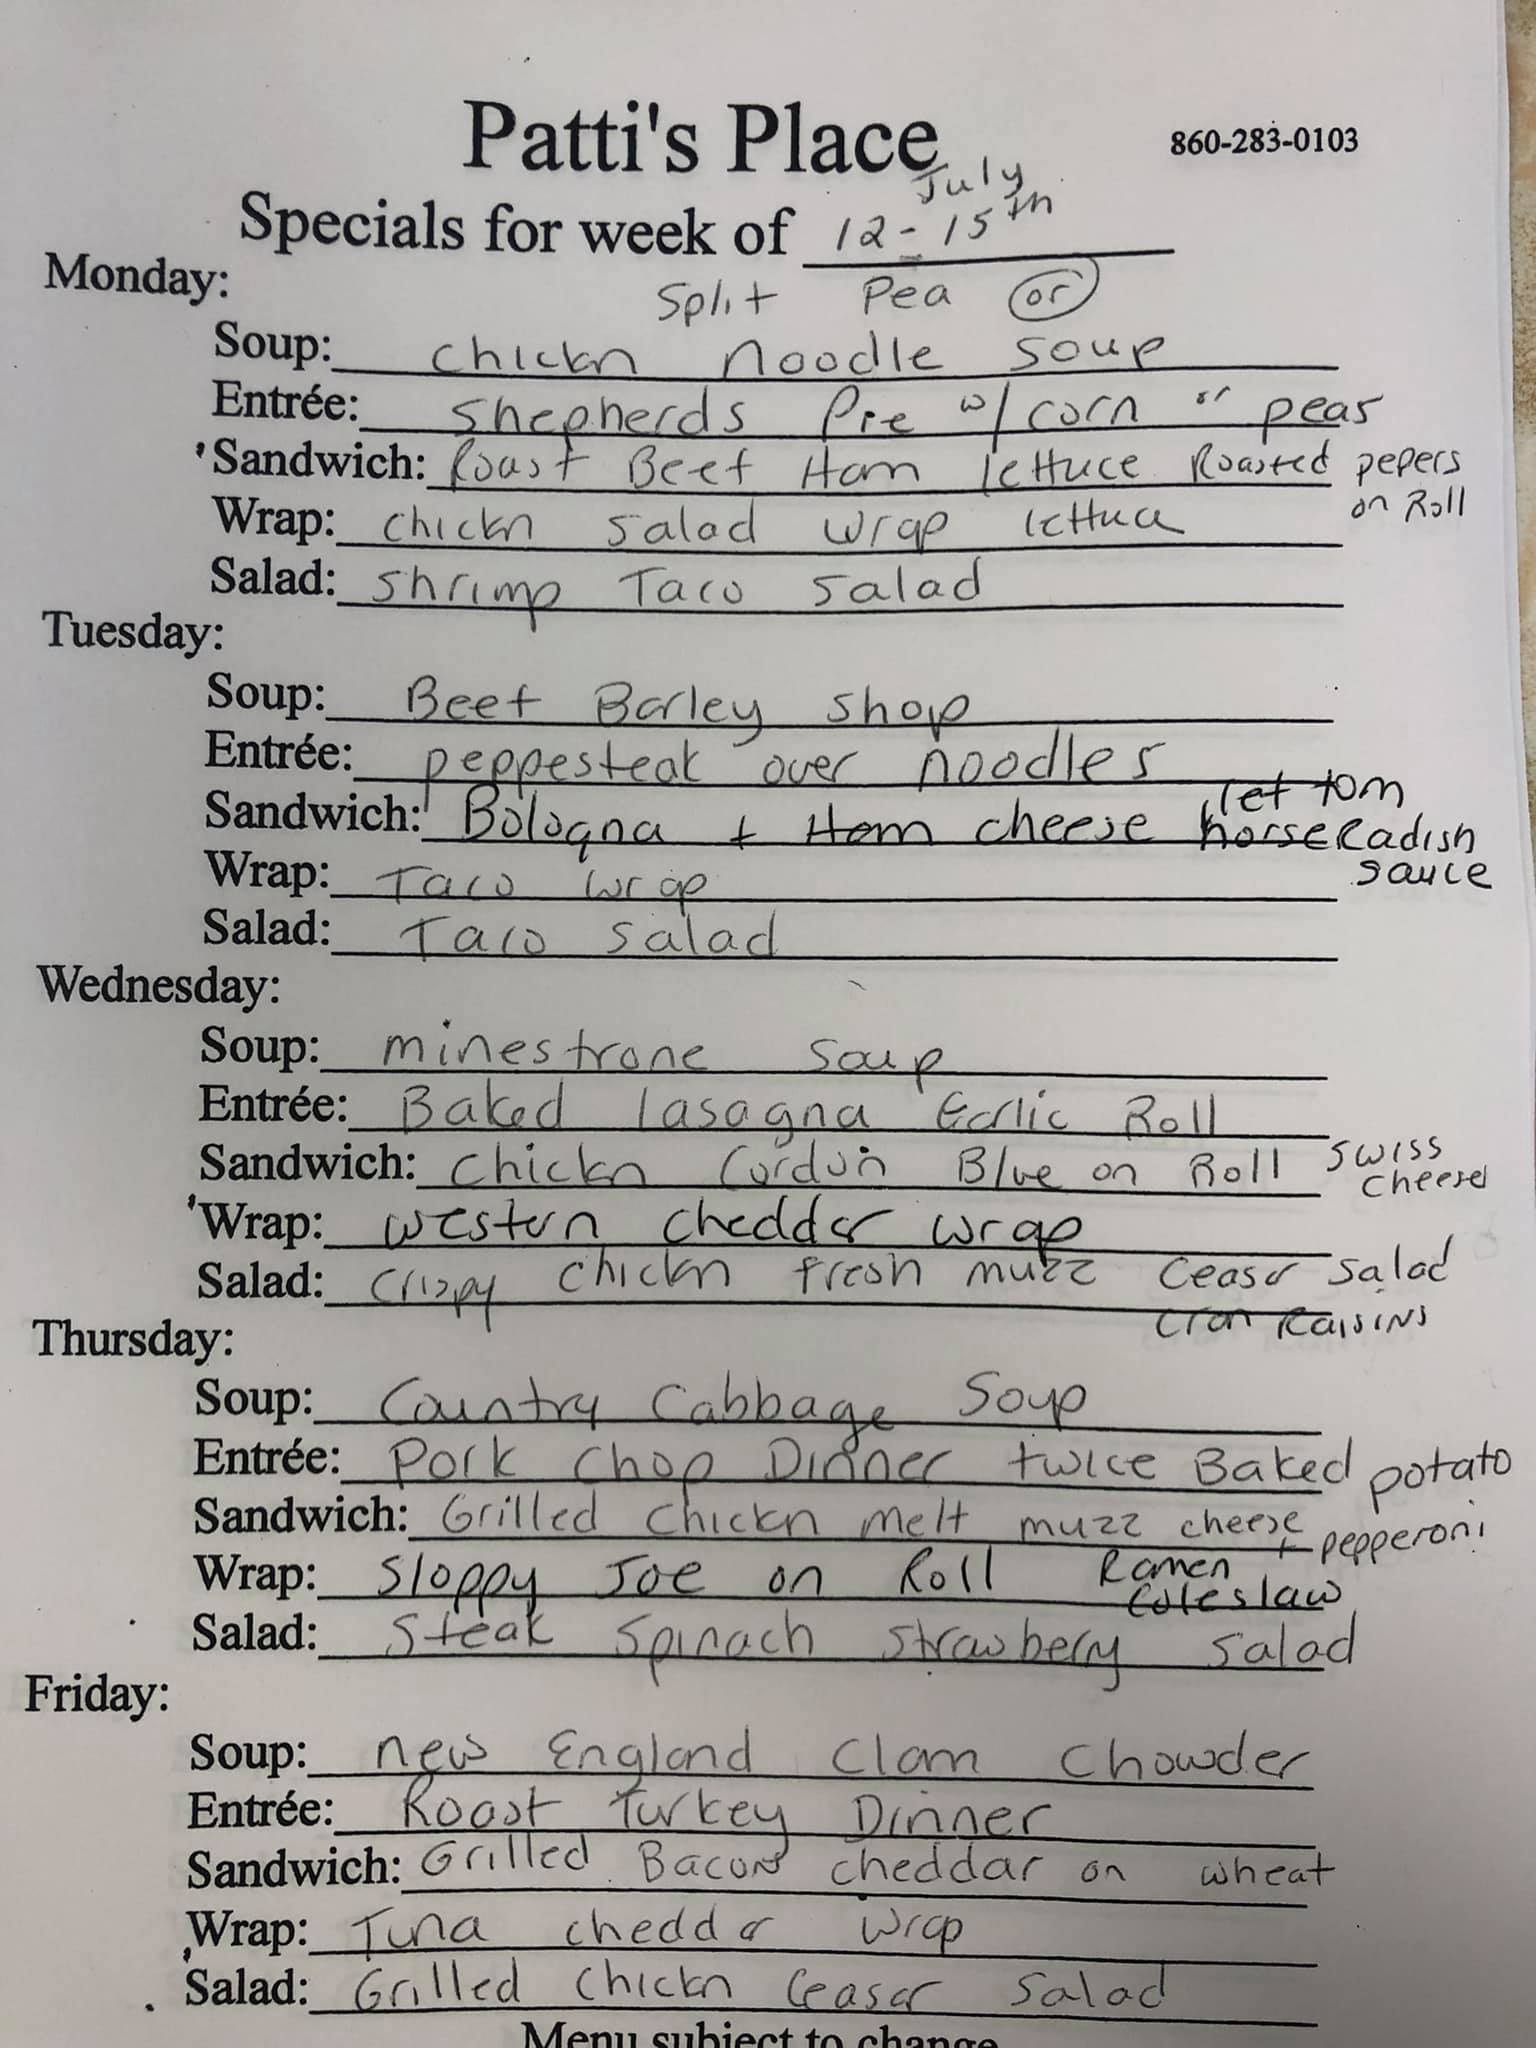 Patti's Place
860-283-0103
July
Specials for week of 12-15th
Monday:
Split Pea or
Soup: Chickn noodle soup
Entrée: Shepherds Pie w/corn or peas
Sandwich: Roast Beef Ham lettuce Roasted pepers
on Roll
Wrap: Chickn Salad wrap lettuce
Salad: Shrimp Taco Salad
Tuesday:
Soup: Beef Barley shop
Entrée: peppesteak over noodles
let tom
Sandwich: Bologna + Ham cheese horseRadish
sauce
Wrap: Taco wrap
Salad: Taco Salad
Wednesday:
Soup: minestrone soup
Entrée: Baked lasagna Garlic Roll
Sandwich: Chickn Cordon Blue on Roll swiss
cheese
Wrap: western cheddar wrap
Salad: Crispy Chickn fresh muzz Ceasar Salad
cran Raisins
Thursday:
Soup: Country Cabbage Soup
Entrée: Pork Chop Dinner twice Baked potato
Sandwich: Grilled Chickn melt muzz cheese
+ pepperoni
Wrap: Sloppy Joe on Roll Ramen
Coleslaw
Salad: Steak Spinach Strawberry Salad
Friday:
Soup: new England Clam Chowder
Entrée: Roast Turkey Dinner
Sandwich: Grilled Bacon cheddar on wheat
Wrap: Tuna cheddar wrap
Salad: Grilled Chickn Ceasar Salad
Menu subject to change